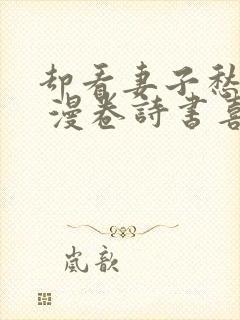 却看妻子愁
漫卷詩書喜
嵐歆